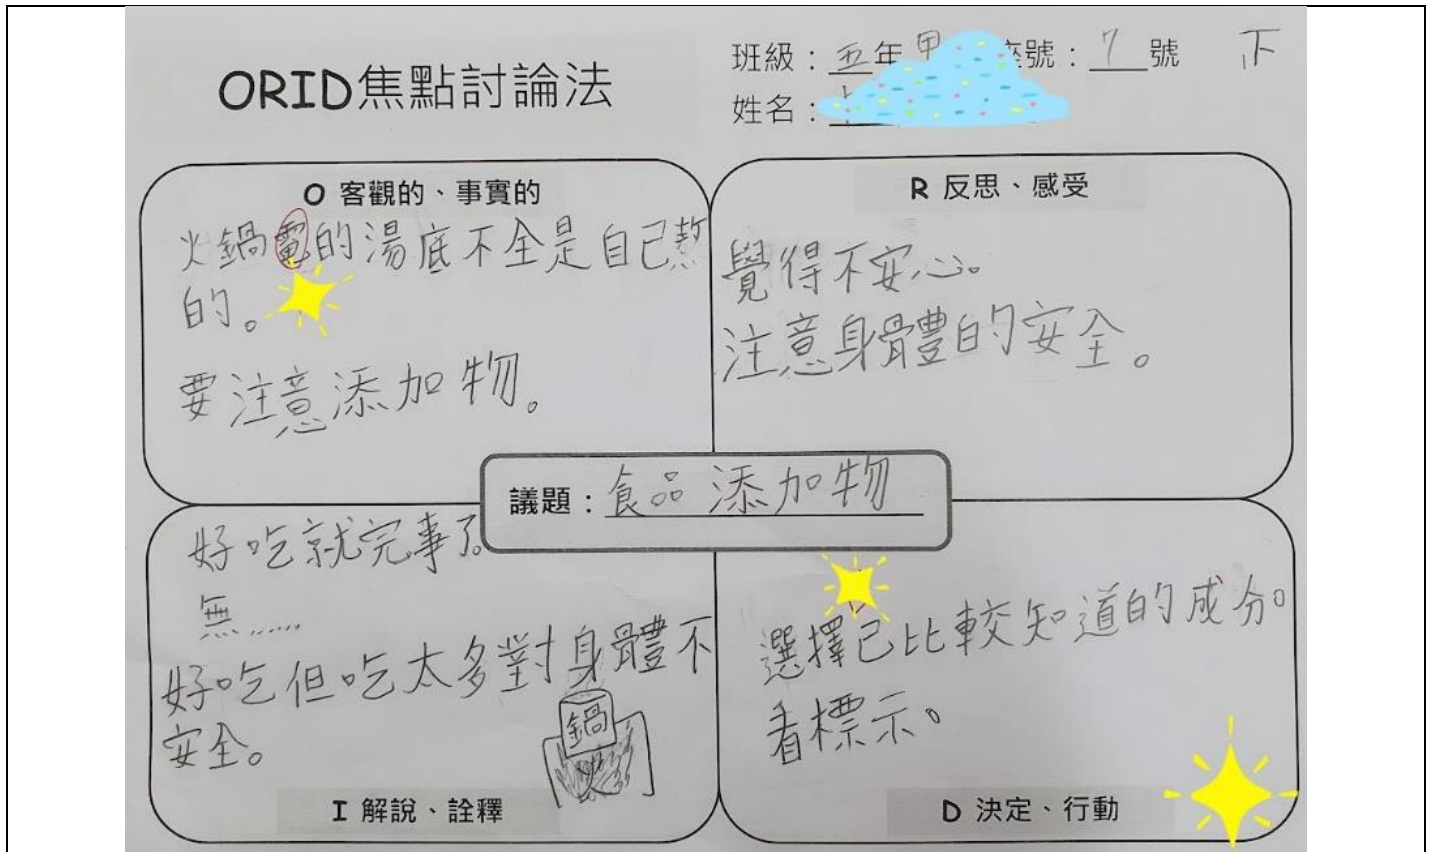 ORID焦點討論法
班級：五年甲 座號：7號 下
姓名：
O 客觀的、事實的
火鍋電的湯底不全是自己熬
的。
要注意添加物。
R 反思、感受
覺得不安心。
注意身體的安全。
議題：食品添加物
好吃就完事了。
無......
好吃但吃太多對身體不
安全。
鍋
火
I 解說、詮釋
選擇已比較知道的成分。
看標示。
D 決定、行動